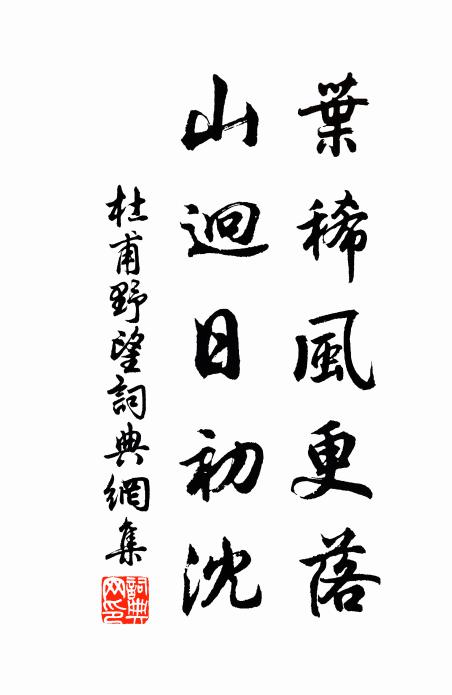 葉稀風更落
山迥日初沈
杜甫野望詞典網集
詞典网印